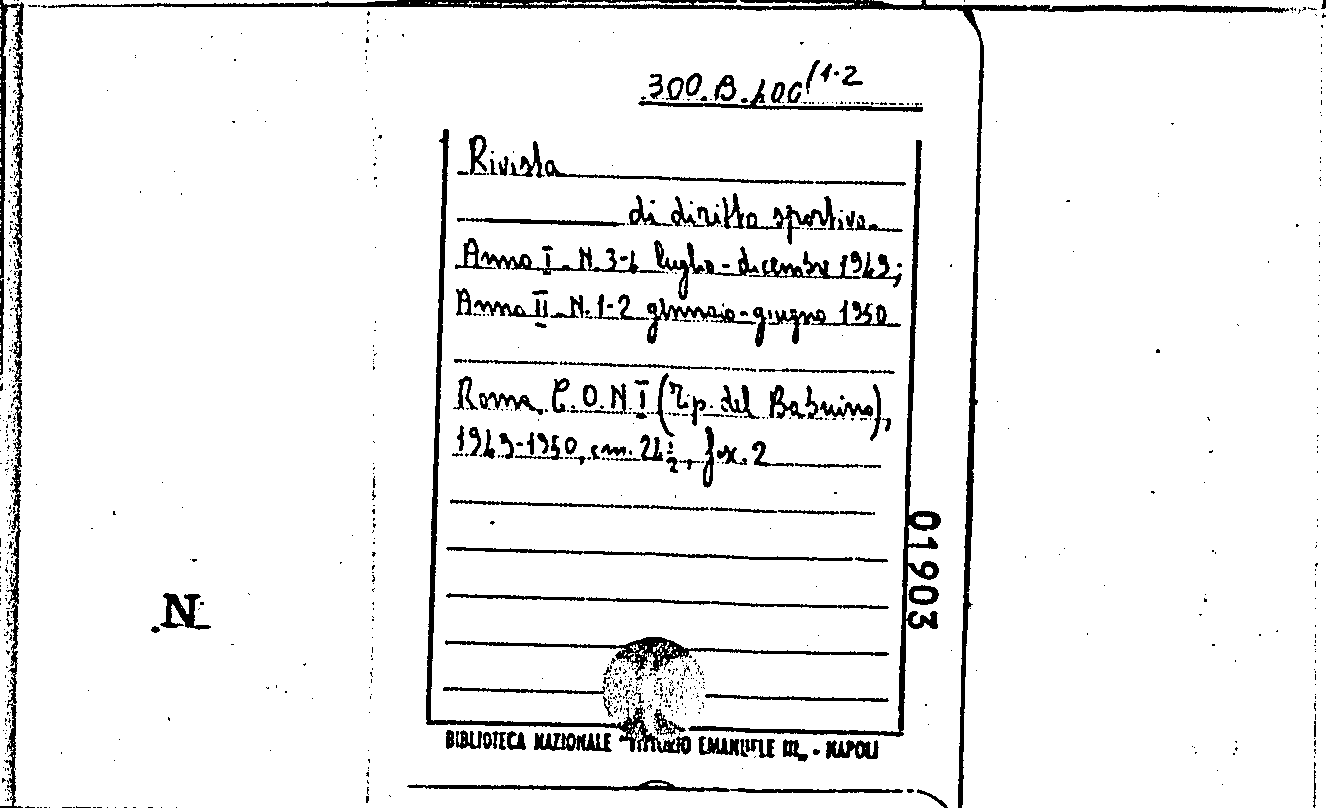 300.B.400/1-2
Rivista
di diritto sportivo.
Anno I. N. 3-4 luglio-dicembre 1949;
Anno II. N. 1-2 gennaio-giugno 1950
Roma, C.O.N.I (Tip. del Babuino),
1949-1950, cm. 24 1/2, fsc. 2
01903
N
BIBLIOTECA NAZIONALE "VITTORIO EMANUELE III" - NAPOLI